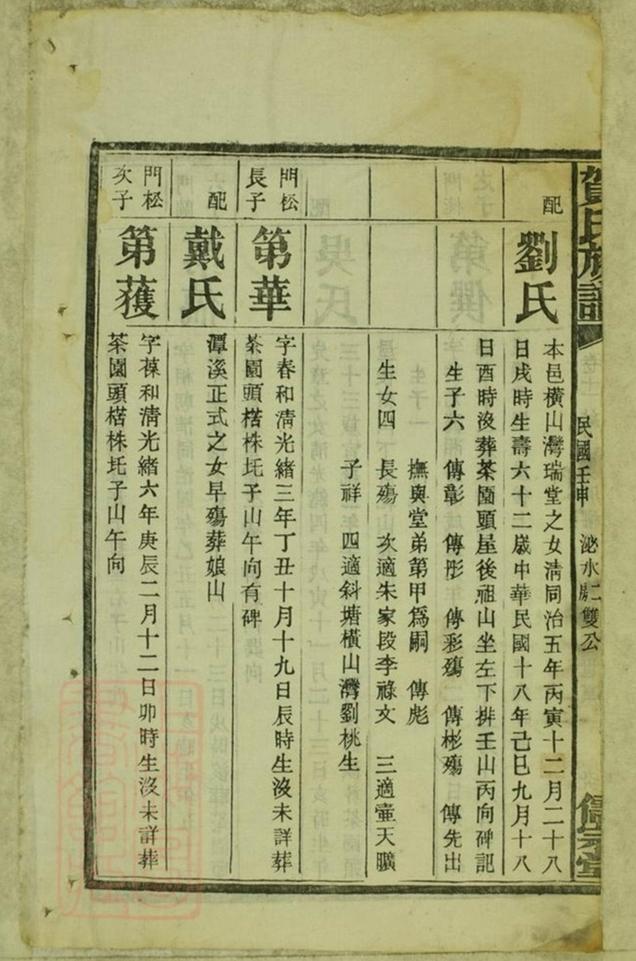 賀氏族譜
民國壬申
泌水二處雙公
配
劉氏
本邑橫山灣瑞堂之女淸同治五年丙寅十二月二十八
日戌時生壽六十二歲中華民國十八年己巳九月十八
日酉時沒葬茶園頭屋後祖山坐左下排壬山丙向碑記
生子六 傳彰 傳彤 傳彩殤 傳彬殤 傳先出
撫與堂弟第甲爲嗣 傳彪
生女四 長殤 次適朱家段李祿文 三適壷天曠
子祥 四適斜塘橫山灣劉桃生
門松
長子
第華
字春和淸光緒三年丁丑十月十九日辰時生沒未詳葬
茶園頭楛株圫子山午向有碑
配
戴氏
潭溪正式之女早殤葬娘山
門松
次子
第蒦
字葆和淸光緒六年庚辰二月十二日卯時生沒未詳葬
茶園頭楛株圫子山午向